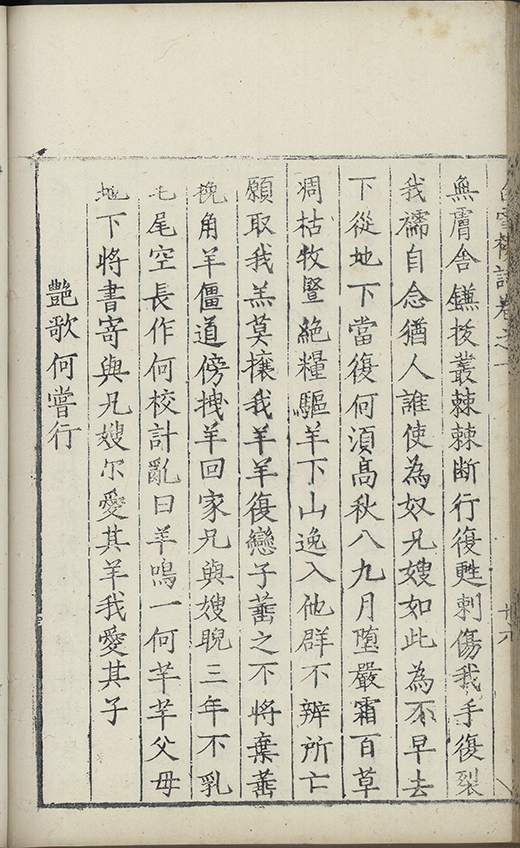 無膚舍鐮拔叢棘棘断行復甦刺傷我手復裂
我襦自念猶人誰使為奴兄嫂如此為不早去
下從地下當復何須高秋八九月墮嚴霜百草
凋枯牧豎絕糧驅羊下山逸入他群不辨所亡
願取我羔莫攘我羊羊復戀子蓄之不將棄蓄
挽角羊僵道傍拽羊回家兄與嫂睨三年不乳
毛尾空長作何校計亂曰羊鳴一何芊芊父母
地下將書寄與兄嫂尔愛其羊我愛其子
艷歌何嘗行